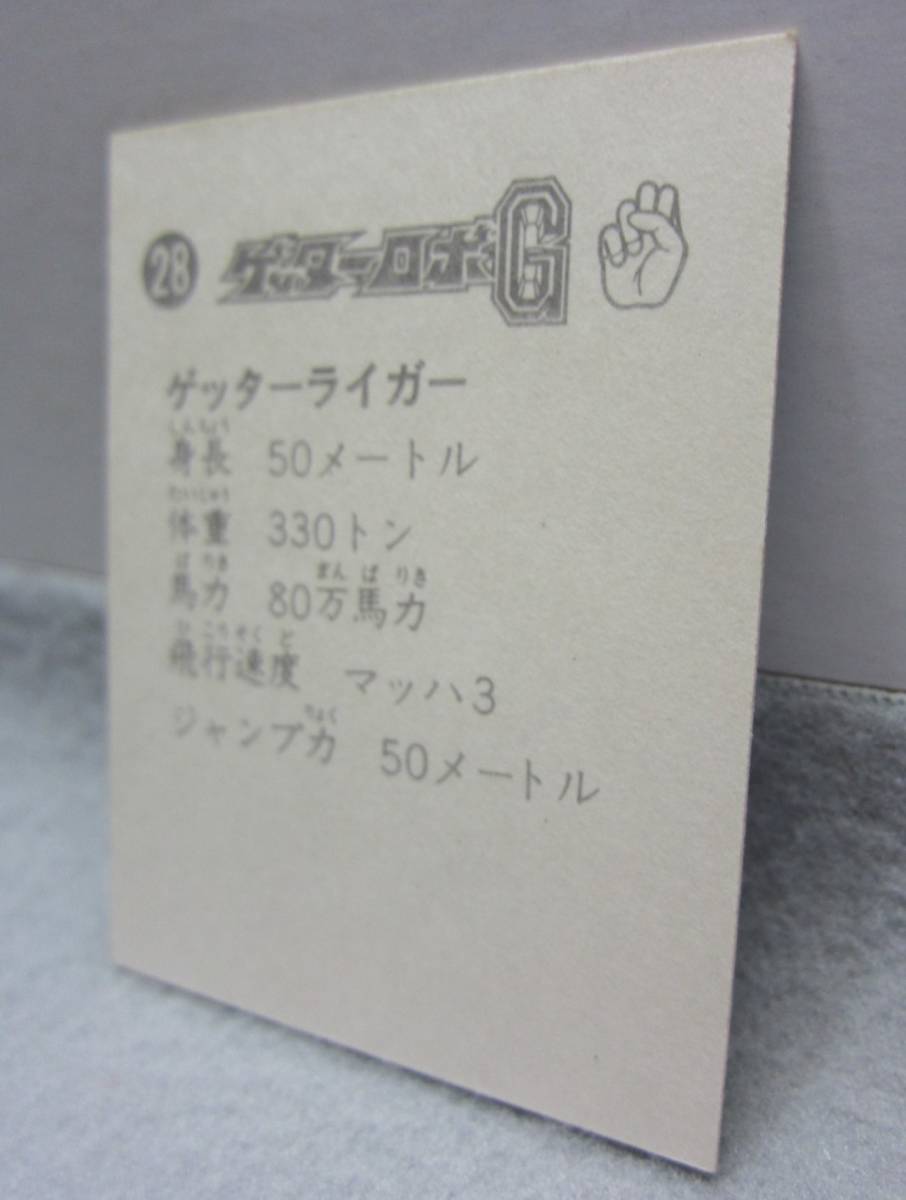 28 ゲッターロボG
ゲッターライガー
しんちょう
身長 50メートル
たいじゅう
体重 330トン
ばりき まんばりき
馬力 80万馬力
ひこうそくど
飛行速度 マッハ3
りょく
ジャンプ力 50メートル